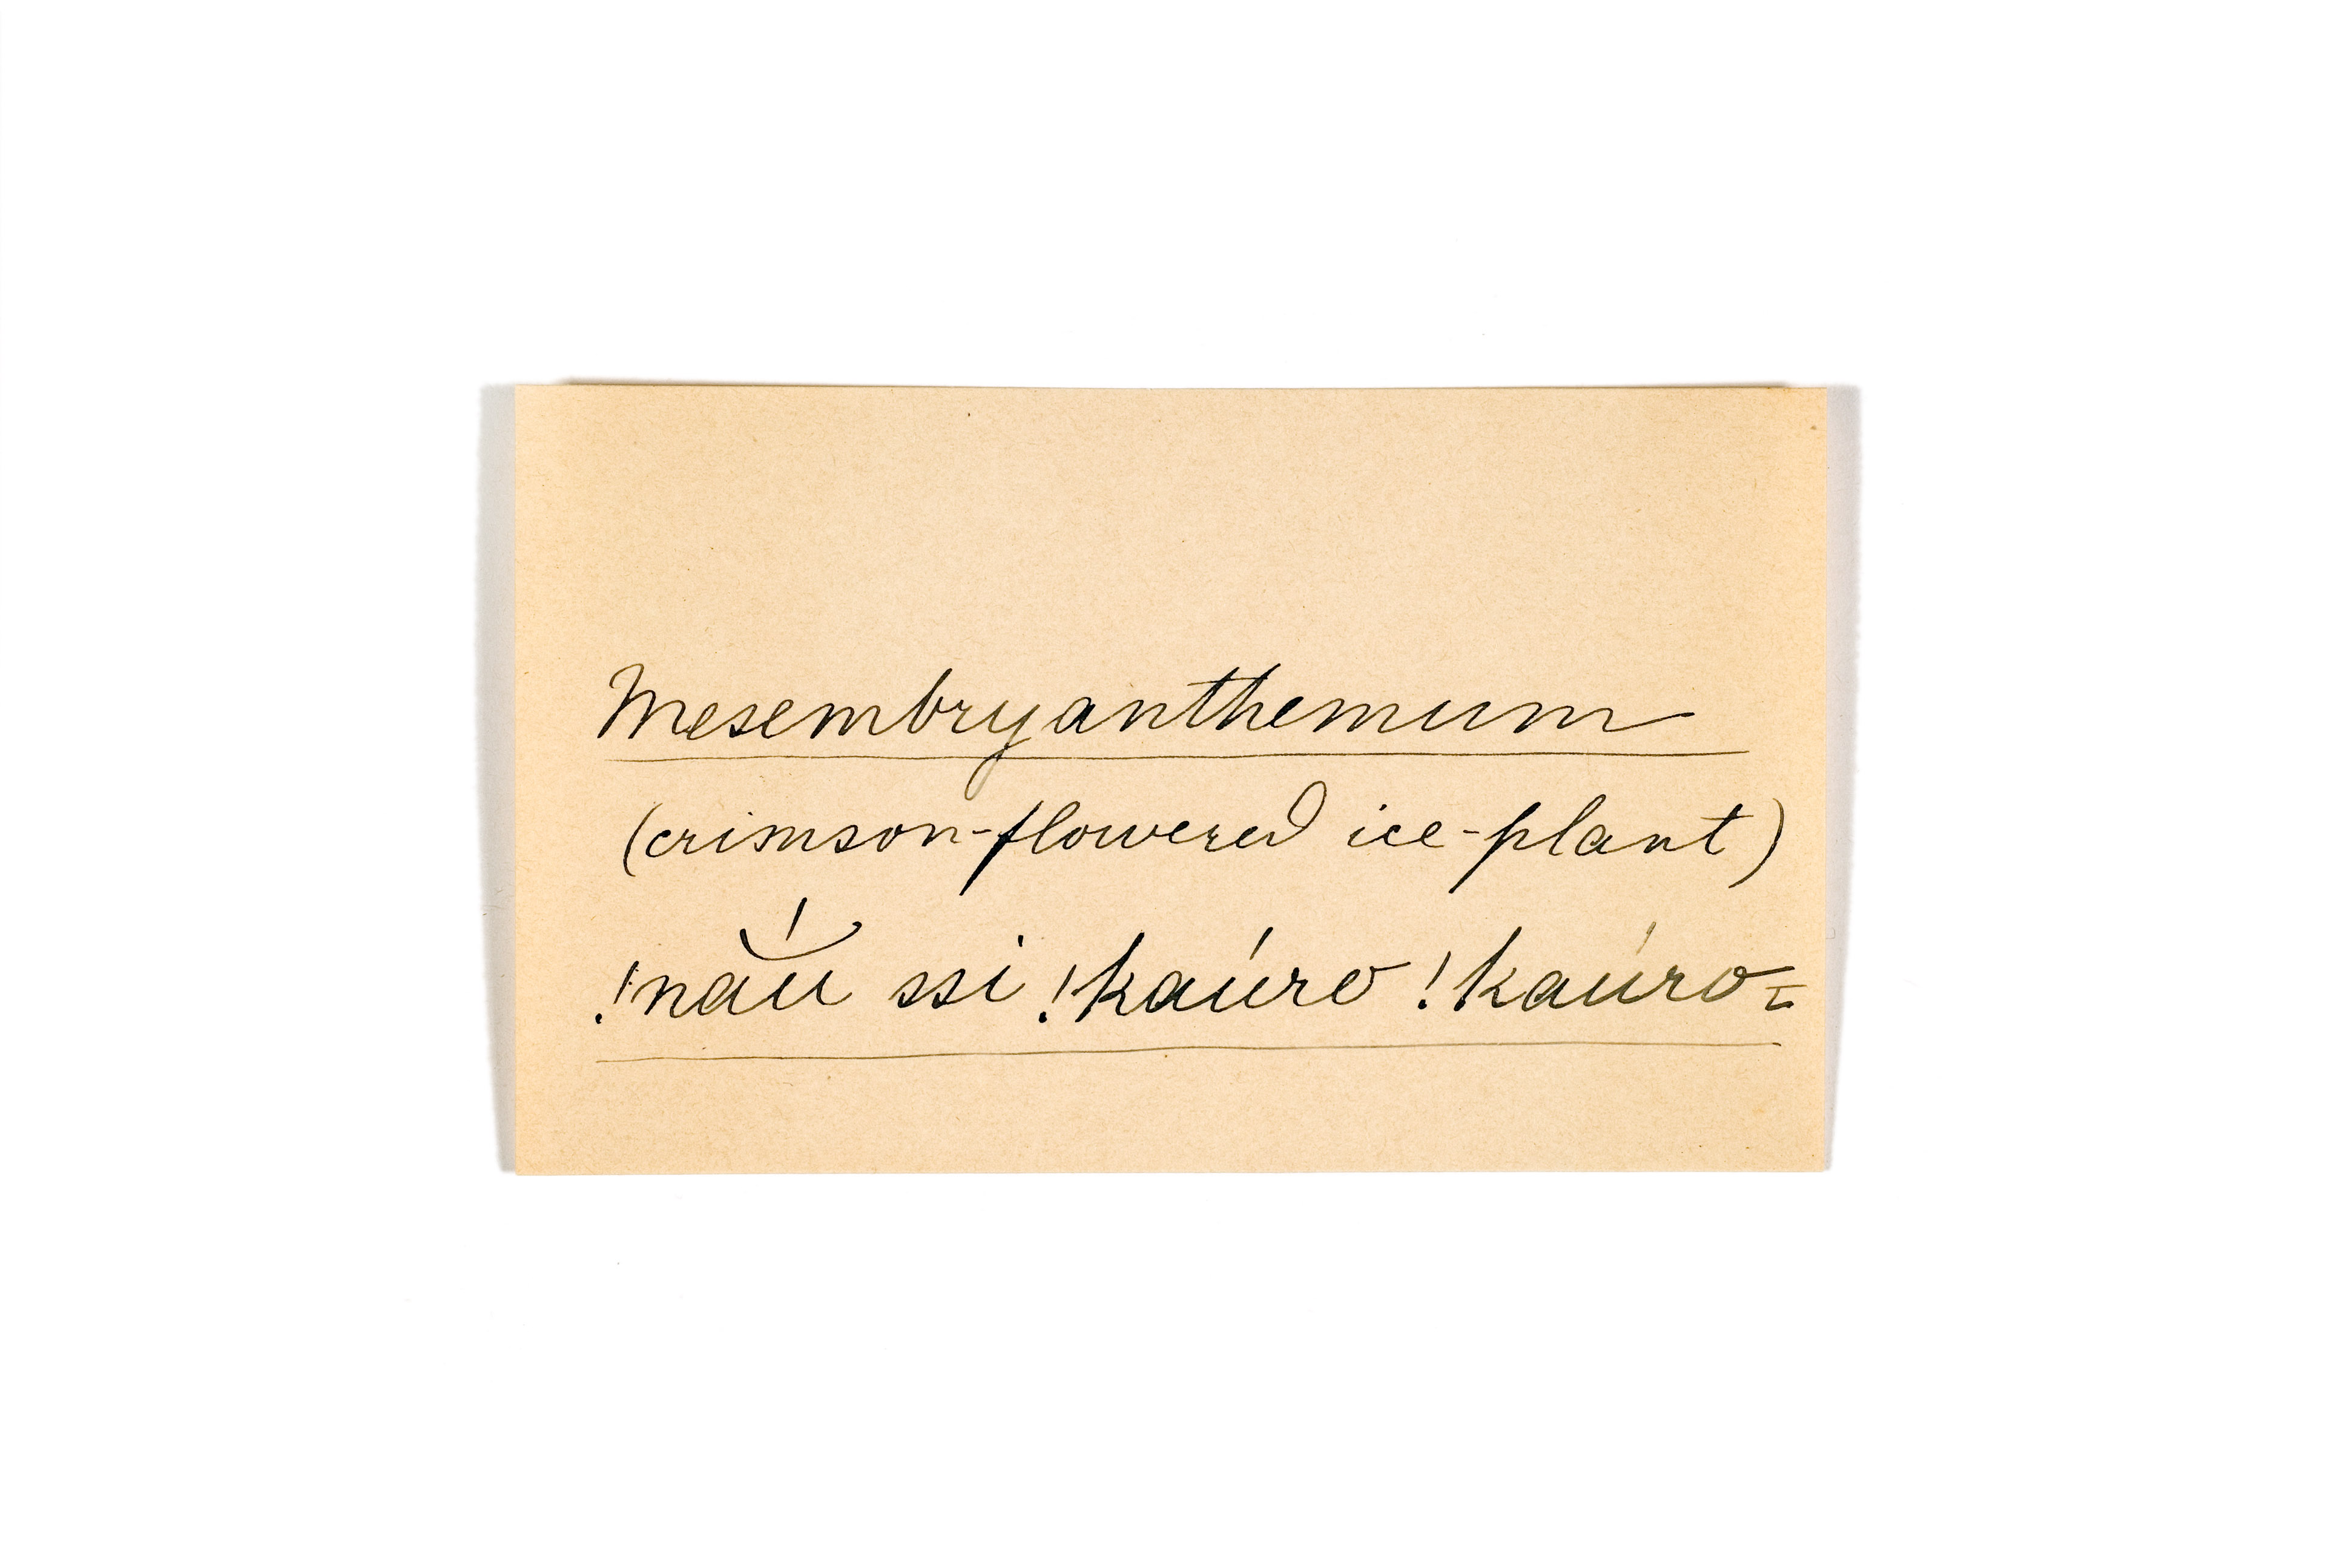 Mesembryanthemum
(crimson-flowered ice-plant)
!nắu ssi !kaúro !kaúro=